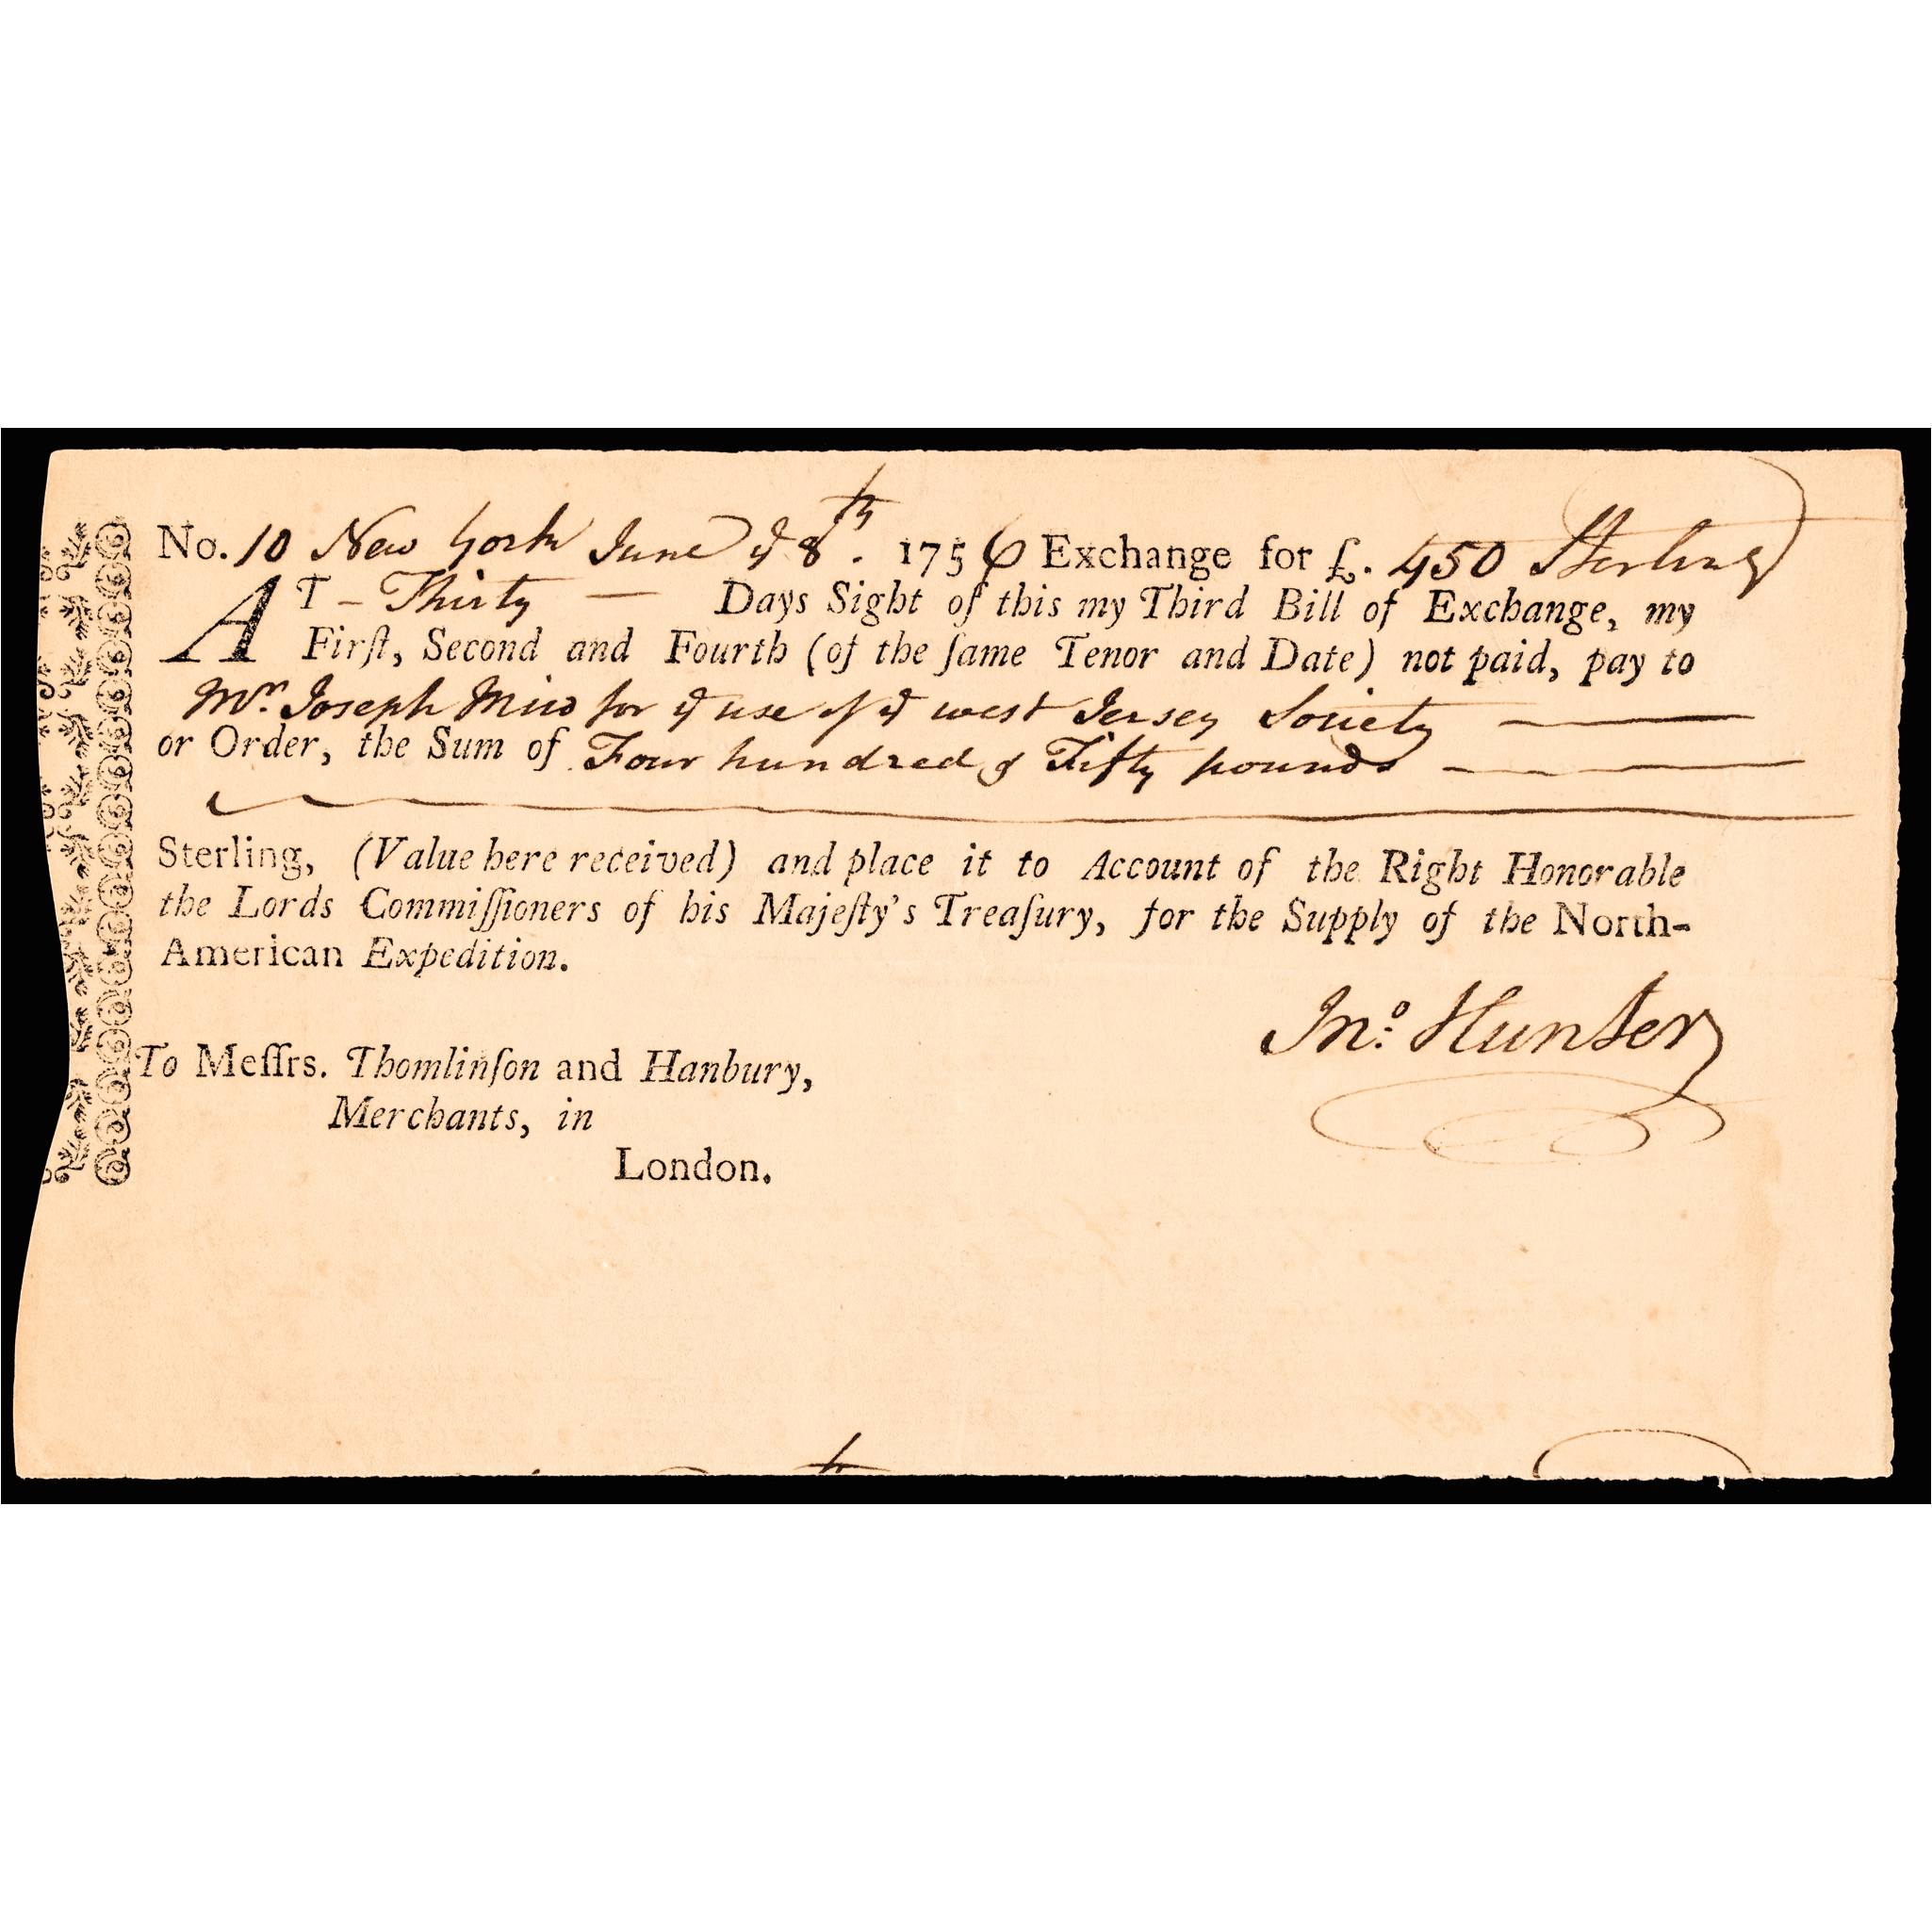 No. 10 New York June yᵉ 8th. 1756 Exchange for £. 450 Sterling
AT – Thirty — Days Sight of this my Third Bill of Exchange, my
Firſt, Second and Fourth (of the ſame Tenor and Date) not paid, pay to
Mr. Joseph Mico for yᵉ use of yᵉ west Jersey Society —
or Order, the Sum of Four hundred & Fifty pounds — —
Sterling, (Value here received) and place it to Account of the Right Honorable
the Lords Commiſſioners of his Majeſty's Treaſury, for the Supply of the North-
American Expedition.
Jno: Hunter
To Meſſrs. Thomlinſon and Hanbury,
Merchants, in
London.